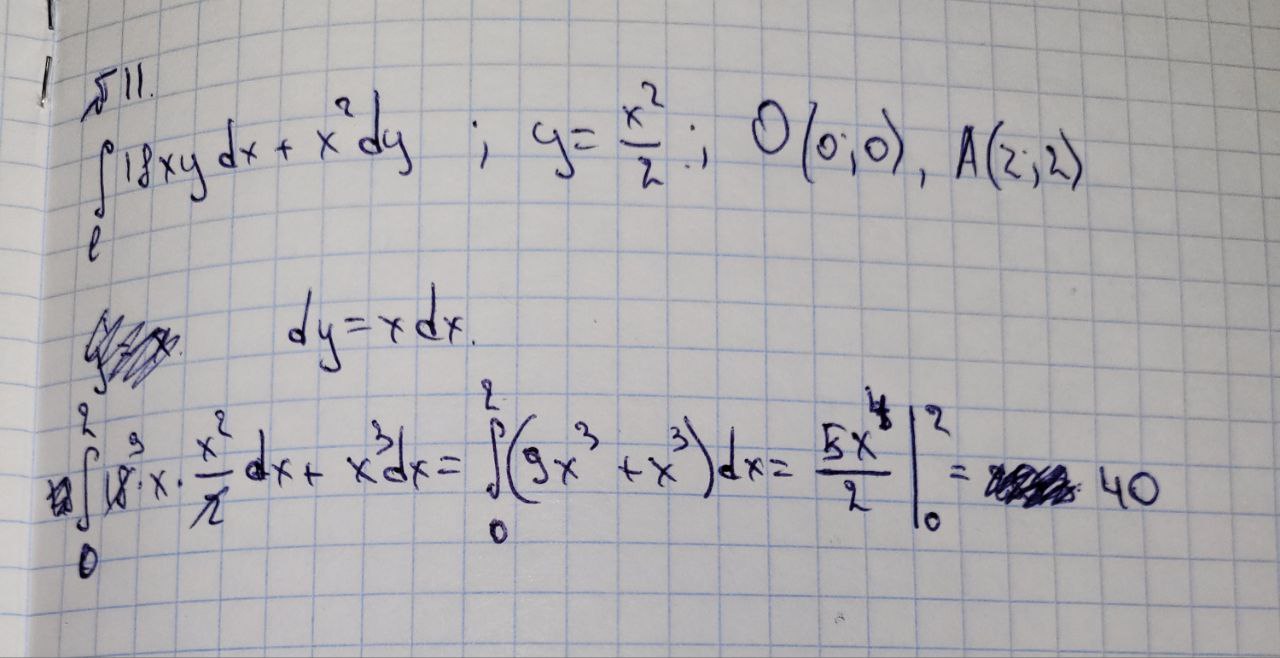 №11.
∫ₗ 18xy dx + x² dy ; y = x²/2 ; O(0;0), A(2;2)
dy = x dx.
∫₀² 18⁹·x·x²/2 dx + x³dx = ∫₀² (9x³ + x³) dx = 5x⁴/2 |₀² = 40